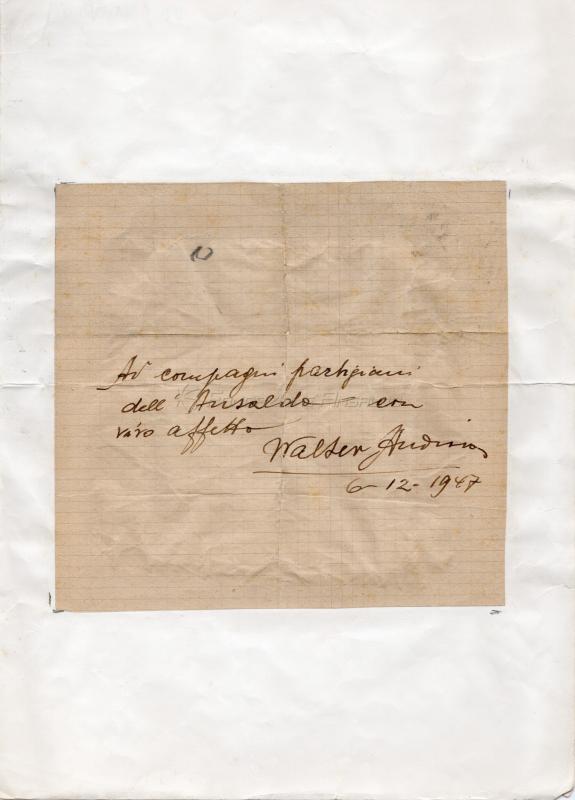 Ai compagni partigiani
dell'Ansaldo con
vivo affetto
Walter Audisio
6-12-1947